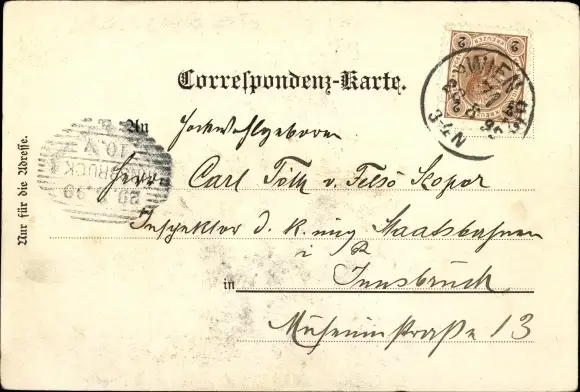 Correspondenz-Karte.
An Hochwohlgeboren
Herrn Carl Tóth v. Felsö Szopor
Inspektor d. k. ung Staatsbahnen
i. R
in Innsbruck
Museumstraße 13
Nur für die Adresse.
WIEN
3-4 N
INNSBRUCK
2
2